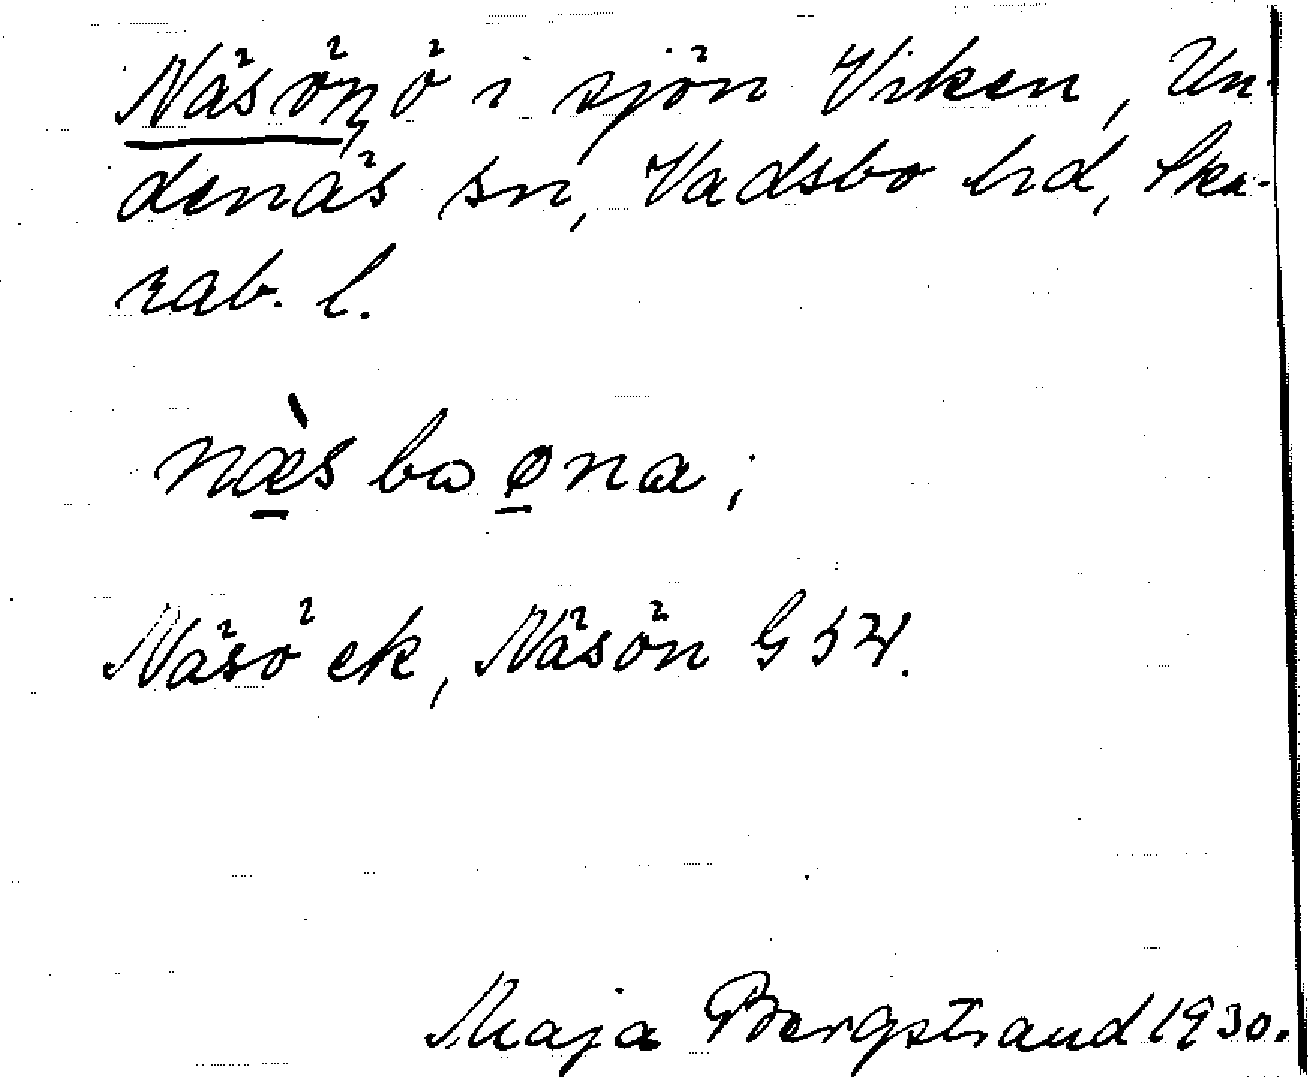 Näsön, ö i sjön Viken, Un-
denäs sn, Vadsbo hd, Ska-
rab. l.
næ̀s bo øna;
Näsö ek, Näsön G 54.
Maja Bergstrand 1930.